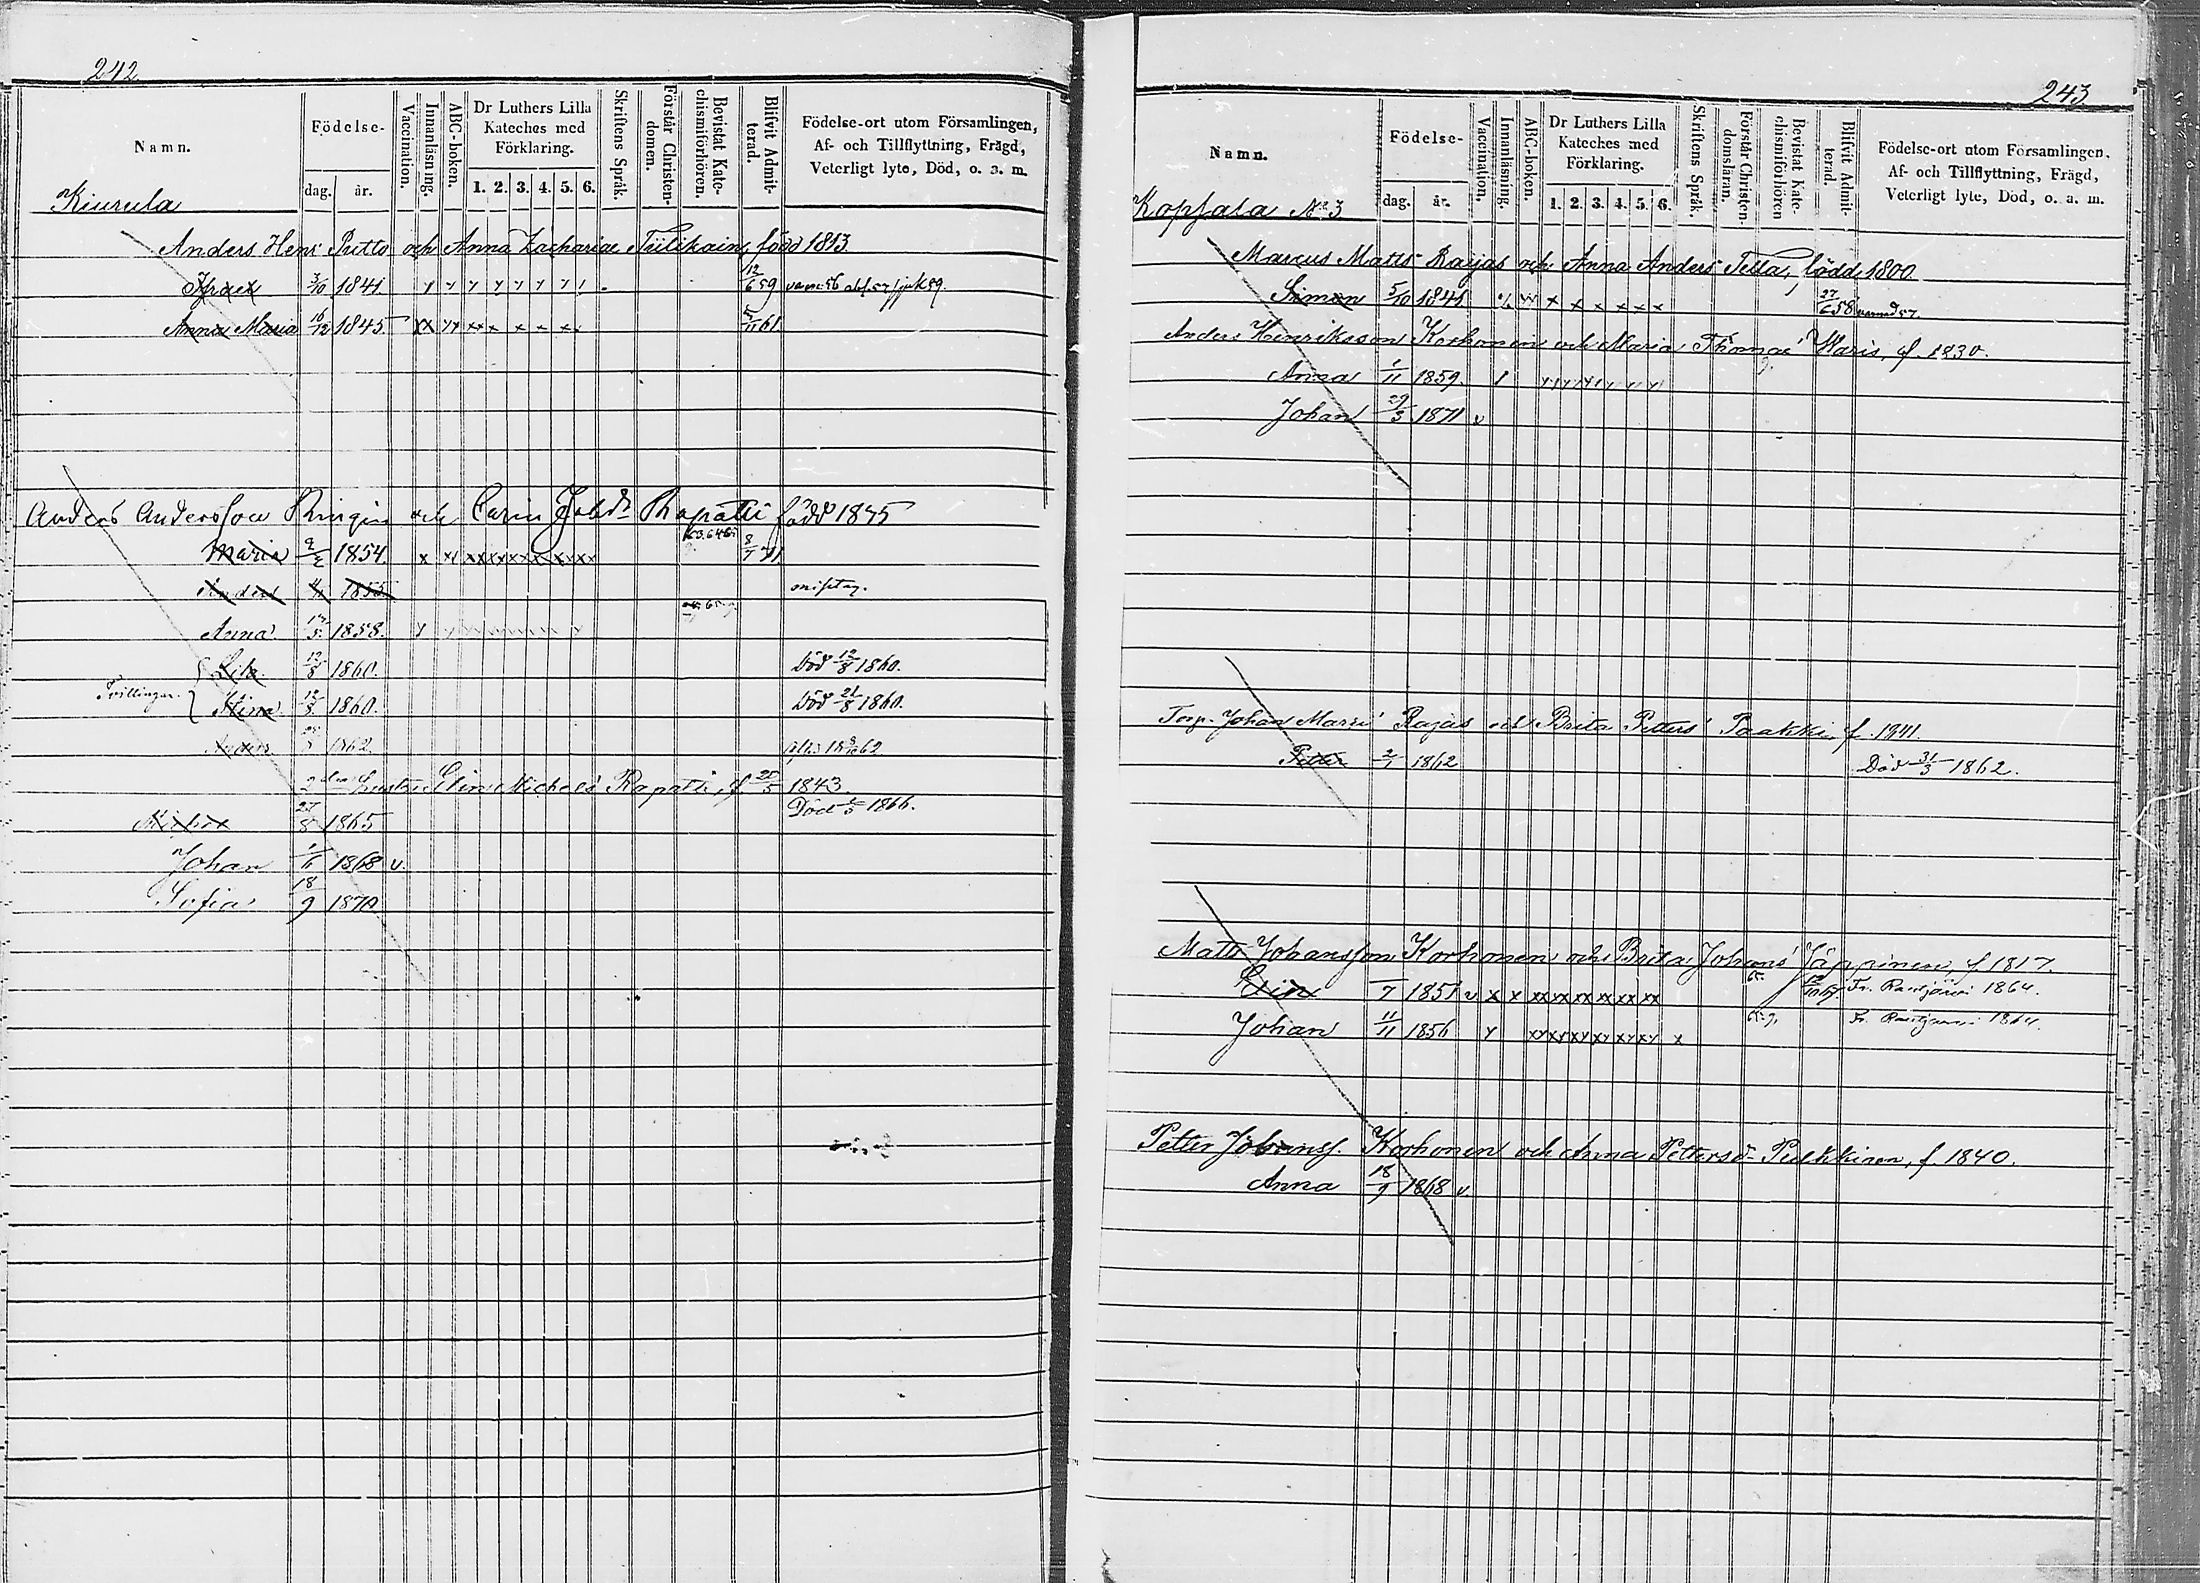 242
Namn.
Födelse-
dag. år.
Vaccination.
Innanläsning.
ABC-boken.
Dr Luthers Lilla Kateches med Förklaring.
1. 2. 3. 4. 5. 6.
Skriftens Språk.
Förstår Christen-domen.
Bevistat Kate-chismiförhören.
Blifvit Admit-terad.
Födelse-ort utom Församlingen, Af- och Tillflyttning, Frägd, Veterligt lyte, Död, o. s. m.
Kiurula
Anders Henr Putto och Anna Zachariae Tiilikain, född 1813
3/10 1841 12/6 59
Anna Maria 16/12 1845 5/11 61
Anders Andersson Ringin och Carin Jakobs Rapatti född 1835
Maria 1854 8/7 71
Anders 1855 misstag.
Anna 1858
Tvillingar
12/8 1860. Död 12/8 1860.
Stina 12/8 1860. Död 21/8 1860.
Anders 1862
2dra hustr. Elin Michels Rapatti, f 25/5 1843.
27/8 1865 Död 1866.
Johan 1/11 1868 v.
Sofia 18/9 1870
243
Namn.
Födelse-
dag. år.
Vaccination.
Innanläsning.
ABC-boken.
Dr Luthers Lilla Kateches med Förklaring.
1. 2. 3. 4. 5. 6.
Skriftens Språk.
Förstår Christen-domsläran.
Bevistat Kate-chismiförhören
Blifvit Admit-terad.
Födelse-ort utom Församlingen, Af- och Tillflyttning, Frägd, Veterligt lyte, Död, o. a. m.
Kopsala No 3
Marcus Matts Rajas och Anna Anders Tella, född 1800
Simon 5/10 1841 27/6 58
Anders Henriksson Korhonen och Maria Thomae Haris, f. 1830.
Anna 1/11 1859.
Johan 29/3 1871 v
Torp. Johan Marcs Rajas och Brita Petters Paakki, f. 1841.
Petter 2/1 1862 Död 31/3 1862.
Matts Johansson Korhonen och Brita Johans Jäppinen, f. 1817.
Elin /7 1851 v Fr. Rautjärvi 1864.
Johan 11/11 1856 Fr. Rautjärvi 1864.
Petter Johanss. Korhonen och Anna Pettersd. Pulkkinen, f. 1840.
Anna 18/9 1868 v